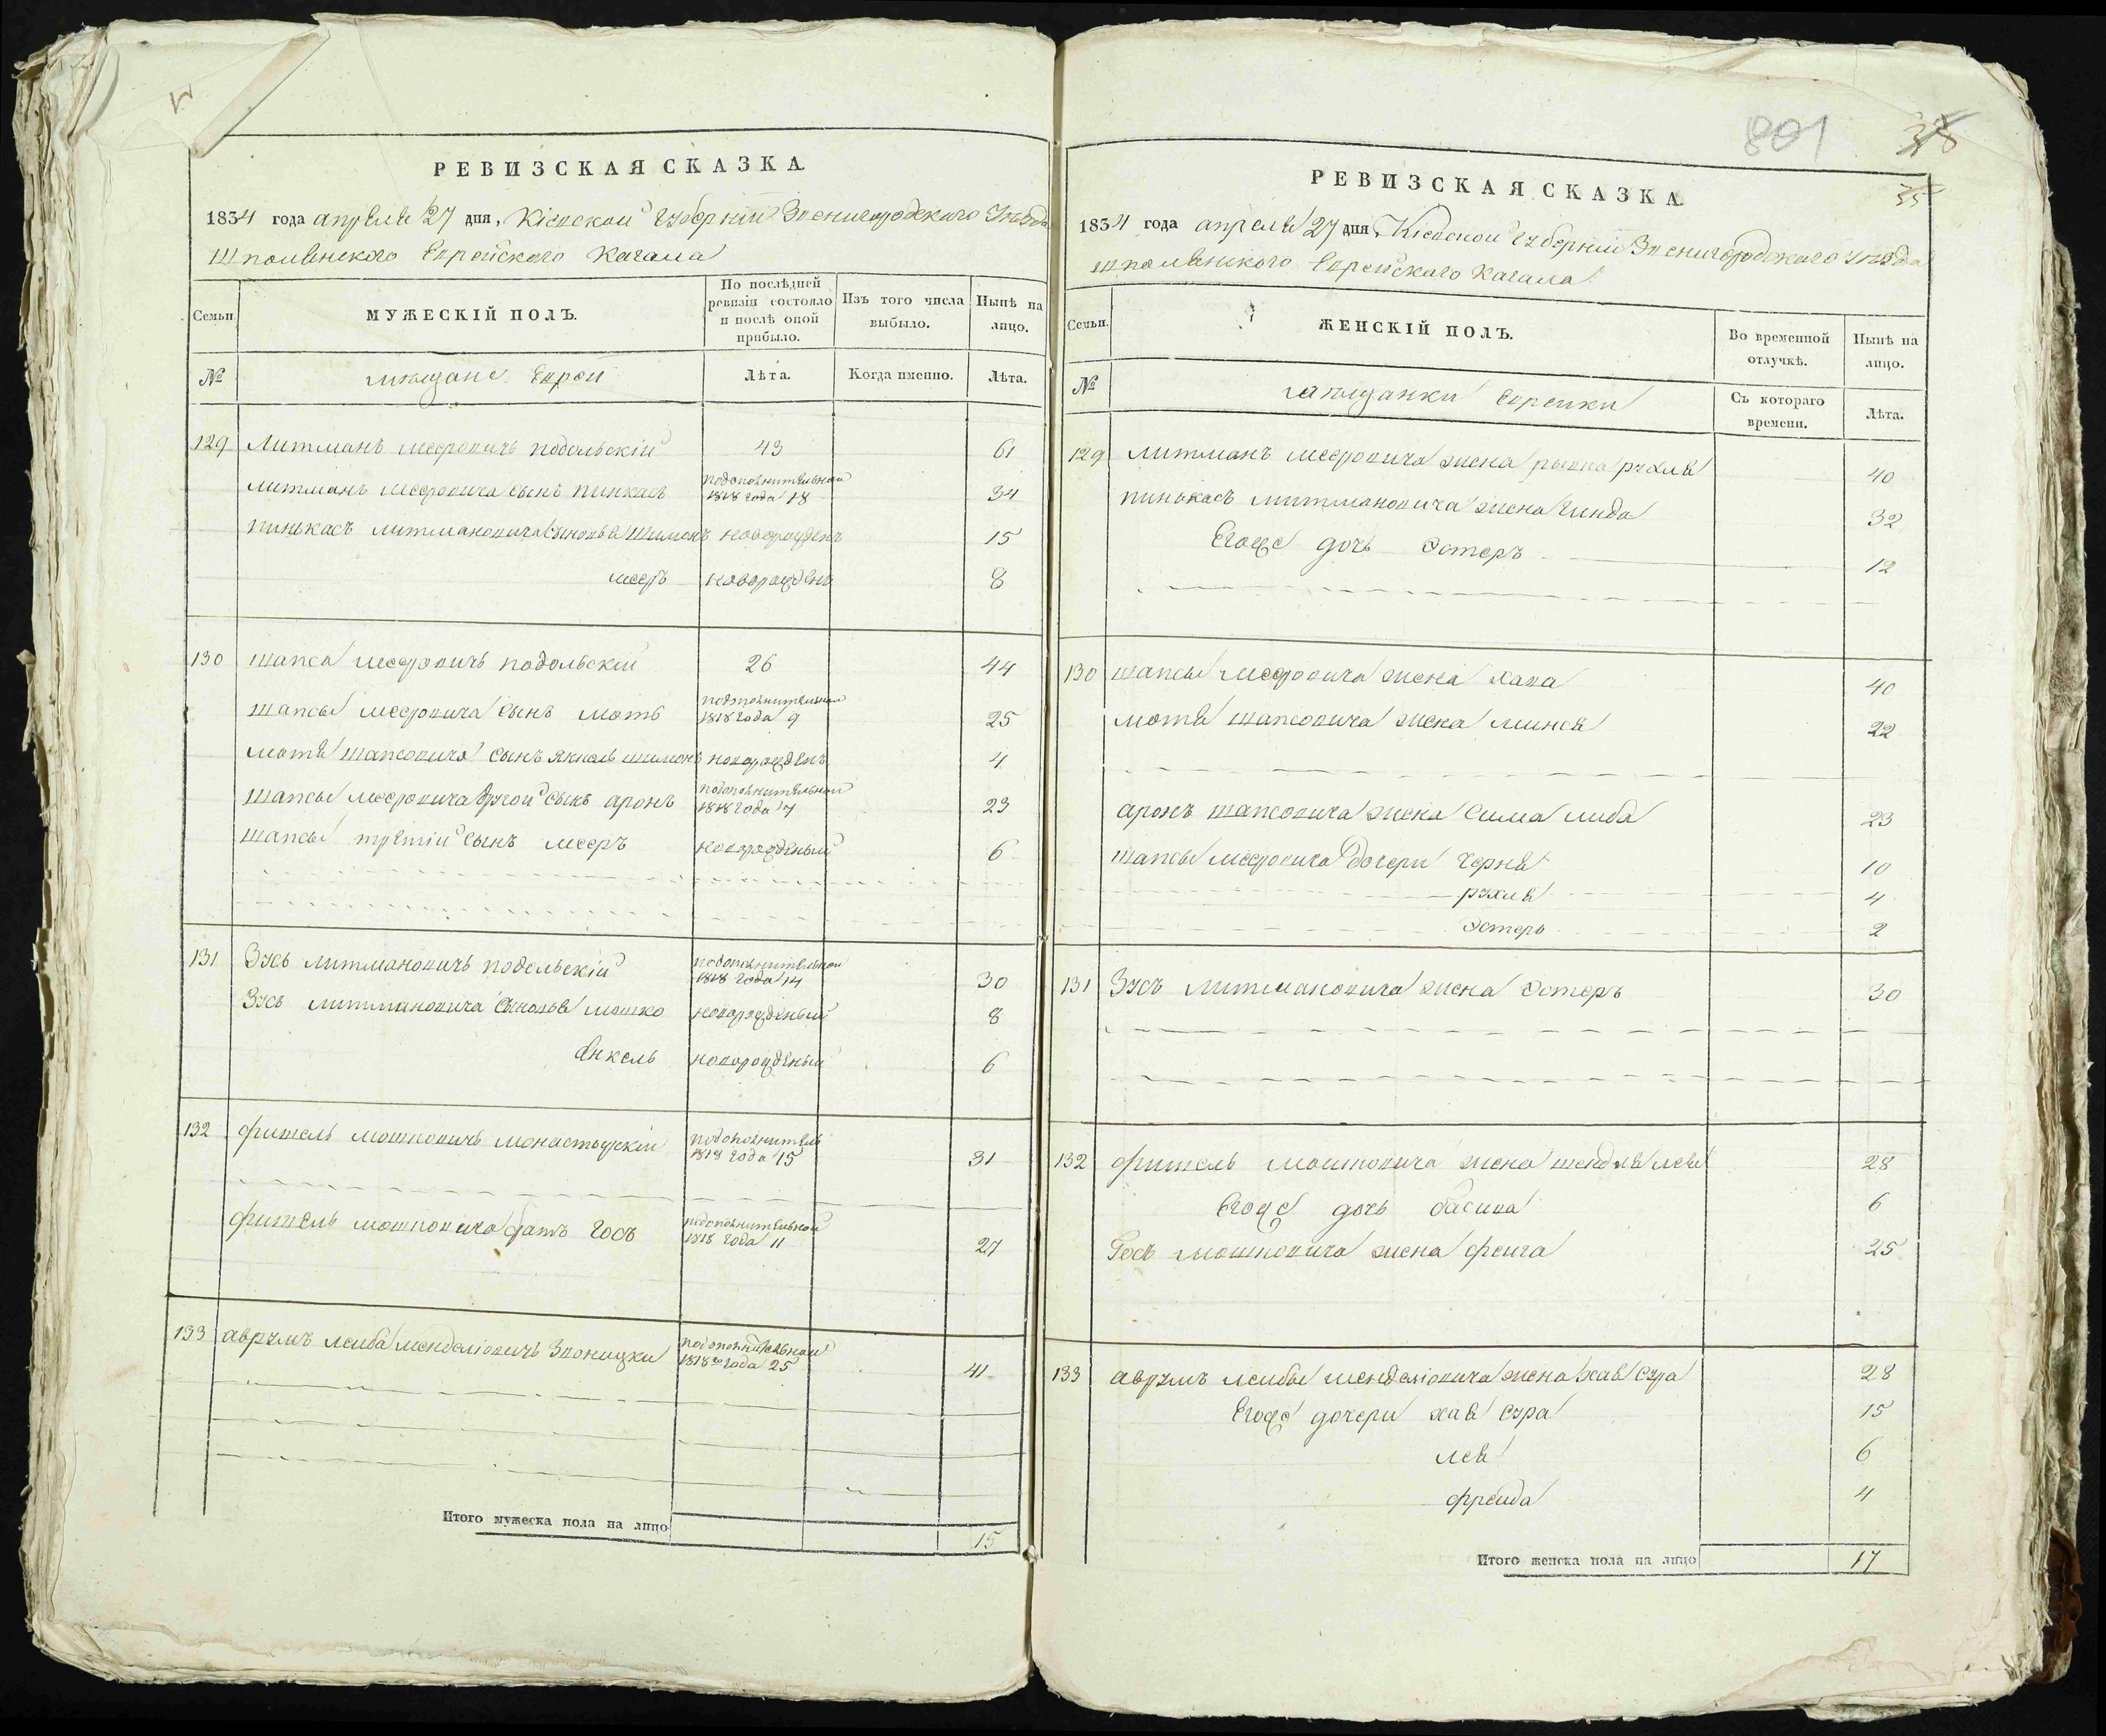 РЕВИЗСКАЯ СКАЗКА
1834 года апреля 27 дня, Кіевской губерніи Звенигородского Уезда
Шполянского Еврейского Кагала
Семьи.
МУЖЕСКІЙ ПОЛЪ.
По послѣдней ревизіи состояло и послѣ оной прибыло.
Изъ того числа выбыло.
Нынѣ на лицо.
№
мещане Евреи
Лѣта.
Когда именно.
Лѣта.
129 Литманъ меерович подольскій 43 61
литманъ мееровича сынъ пинкасъ подополнительной 1818 года 18 34
пинькасъ литмановича сыновья шимонъ новорожденъ 15
мееръ новорожденъ 8
130 шапса меерович подольскій 26 44
шапсы мееровича сынъ моть подополнительной 1818 года 9 25
мотя шапсовича сынъ янкель шимонъ новорожденъ 4
шапсы мееровича другой сынъ аронъ подополнительной 1818 года 7 23
шапсы третій сынъ мееръ новорожденый 6
131 Зусь литмановичь подольскій подополнительной 1818 года 14 30
Зусь литмановича сыновья мошко новорожденый 8
Янкель новорожденый 6
132 фишель мошковичь монастырскій подополнитель 1818 года 15 31
фишель мошковича братъ Госъ подополнительной 1818 года 11 27
133 аврумъ лейба менделіовичь подополнительной 1818го года 25 41
Итого мужеска пола на лицо 15
801
38
35
РЕВИЗСКАЯ СКАЗКА
1834 года апреля 27 дня, Кіевской губерніи Звенигородского уезда
шполянского Еврейского Кагала
Семьи.
ЖЕНСКІЙ ПОЛЪ.
Во временной отлучкѣ.
Нынѣ на лицо.
№
мещанки Еврейки
Съ котораго времени.
Лѣта.
129 литманъ мееровича жена рывка рухля 40
пинькасъ литмановича жена гинда 32
Егоже дочь Эстеръ 12
130 шапсы мееровича жена хава 40
мотя шапсовича жена минся 22
аронъ шапсовича жена сима либа 23
шапсы мееровича дочери черня 10
рухля 4
Эстеръ 2
131 Зусъ литмановича жена Эстеръ 30
132 фишель мошковича жена шендля лея 28
Егоже дочь басива 6
Госъ мошковича жена фейга 25
133 аврумъ лейбы менделіовича жена хая сура 28
Егоже дочери хая сура 15
лея 6
фрейда 4
Итого женска пола на лицо 17